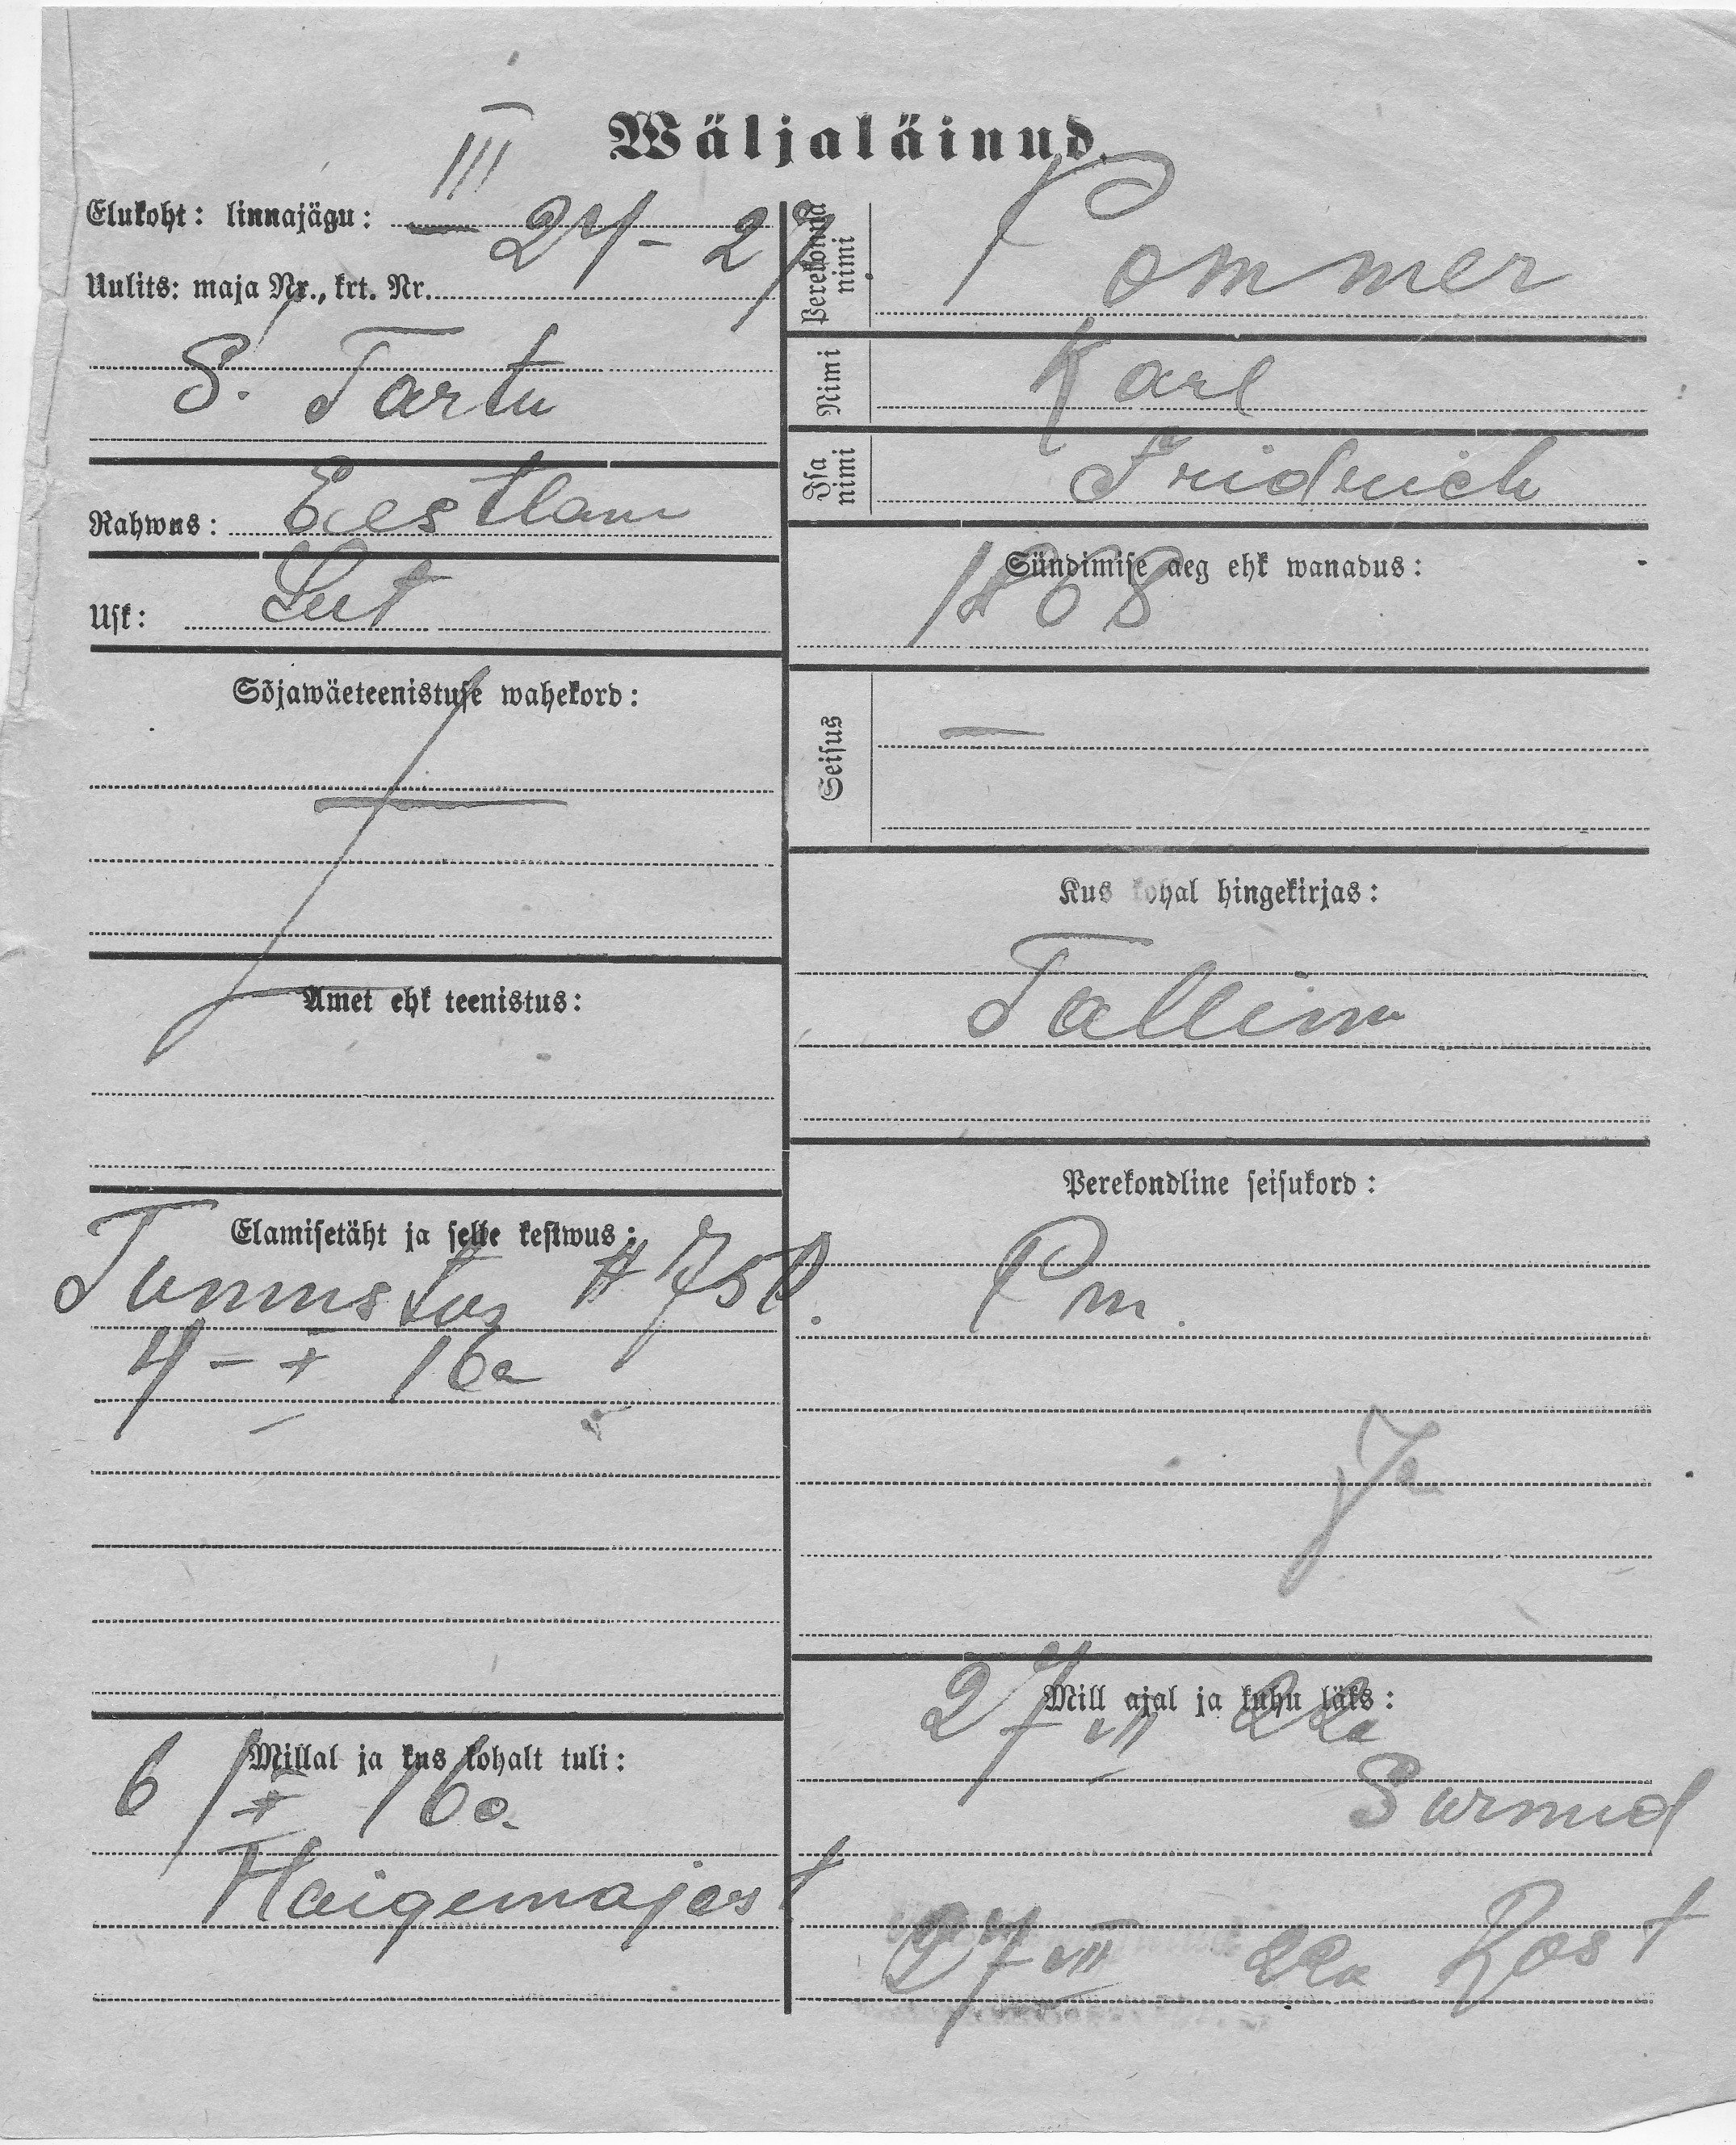 Wäljaläinud.
Elukoht: linnajägu: III
24-27
Uulits: maja Nr., krt. Nr.
S. Tartu
Rahwus: Eestlane
Usk: Lut
Sõjawäeteenistuse wahekord:
—
Amet ehk teenistus:
Elamisetäht ja selle kestwus:
Tunnistus # 758.
4 - I 16a
Millal ja kus kohalt tuli:
6/I 16a.
Haigemajast
Perekonna nimi
Pommer
Nimi
Karl
Isa nimi
Fridrich
Sündimise aeg ehk wanadus:
1868
Seisus
—
Kus kohal hingekirjas:
Tallinn
Perekondline seisukord:
Pm.
Mill ajal ja kuhu läks:
27 VII 22a
Surnud
27 VII 22a